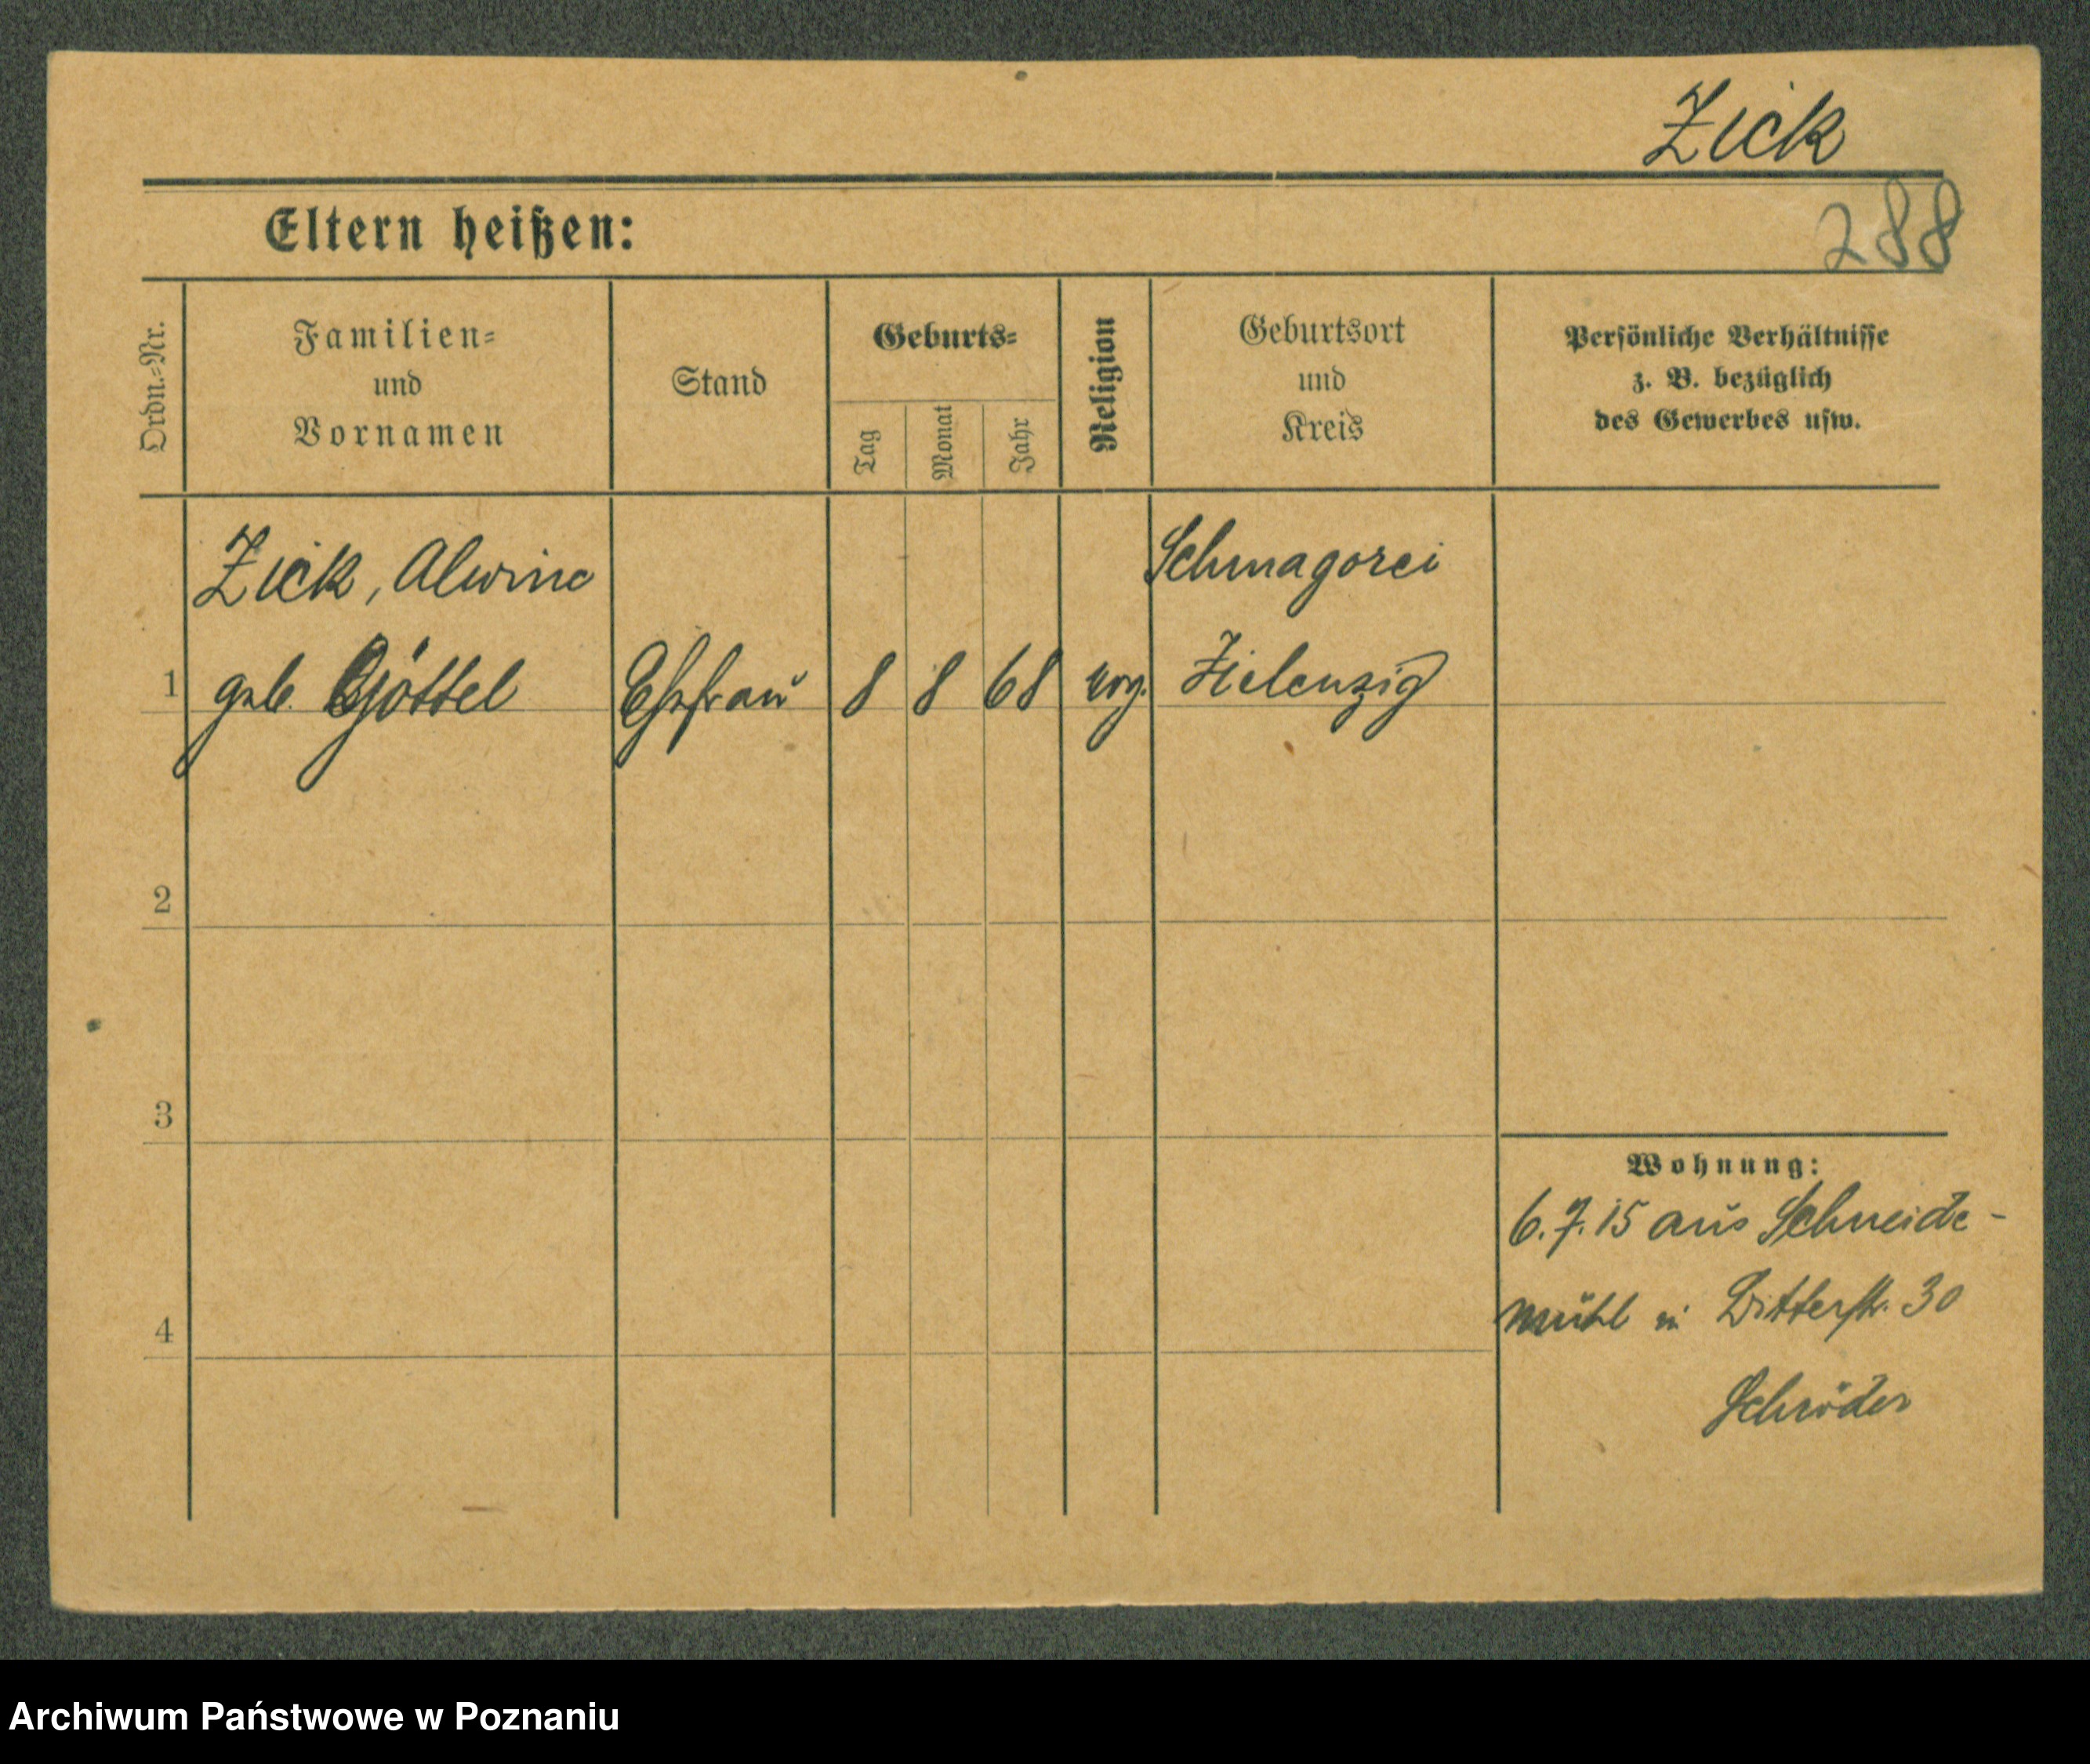 Zick
288
Eltern heißen:
Ordn.-Nr.
Familien-
und
Vornamen
Stand
Geburts-
Tag
Monat
Jahr
Religion
Geburtsort
und
Kreis
Persönliche Verhältnisse
z. B. bezüglich
des Gewerbes usw.
Zick, Alwine
Schmagorei
1 geb. Göttel Ehefrau 8 8 68 evg. Zielenzig
2
3
4
Wohnung:
6.7.15 aus Schneide-
mühl in Bitterstr. 30
Schröder
Archiwum Państwowe w Poznaniu